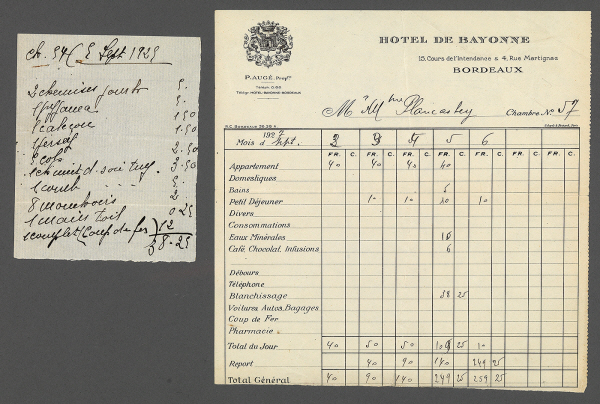 5 Sept 1929
2 chemises jour 5.
1 pyjama 5.
1 caleçon 1.50
1.50
2 cols 2.50
1 chemise d. soie 3.50
1 5.
8 mouchoirs 2
1 0.25
1 complet (Coup de fer) 12
38-25
HOTEL DE BAYONNE
15, Cours de l'Intendance & 4, Rue Martignac
BORDEAUX
P. AUGÉ, Propre
Téléph. 0.88
Télégr. HOTEL-BAYONNE-BORDEAUX
Mr & Mme Chambre No 57
R.C. BORDEAUX
Mois de Sept. 192 2 3 4 5 6
FR. C. FR. C. FR. C. FR. C. FR. C. FR. C. FR. C. FR. C.
Appartement 40 40 40 40
Domestiques
Bains 5
Petit Déjeuner 10 10 10
Divers
Consommations
Eaux Minérales
Café, Chocolat, Infusions 6
Débours
Téléphone
Blanchissage 38 25
Voitures, Autos, Bagages
Coup de Fer
Pharmacie
Total du Jour 40 50 50 109 25 10
Report 40 90 140 249 25
Total Général 40 90 140 249 25 259 25